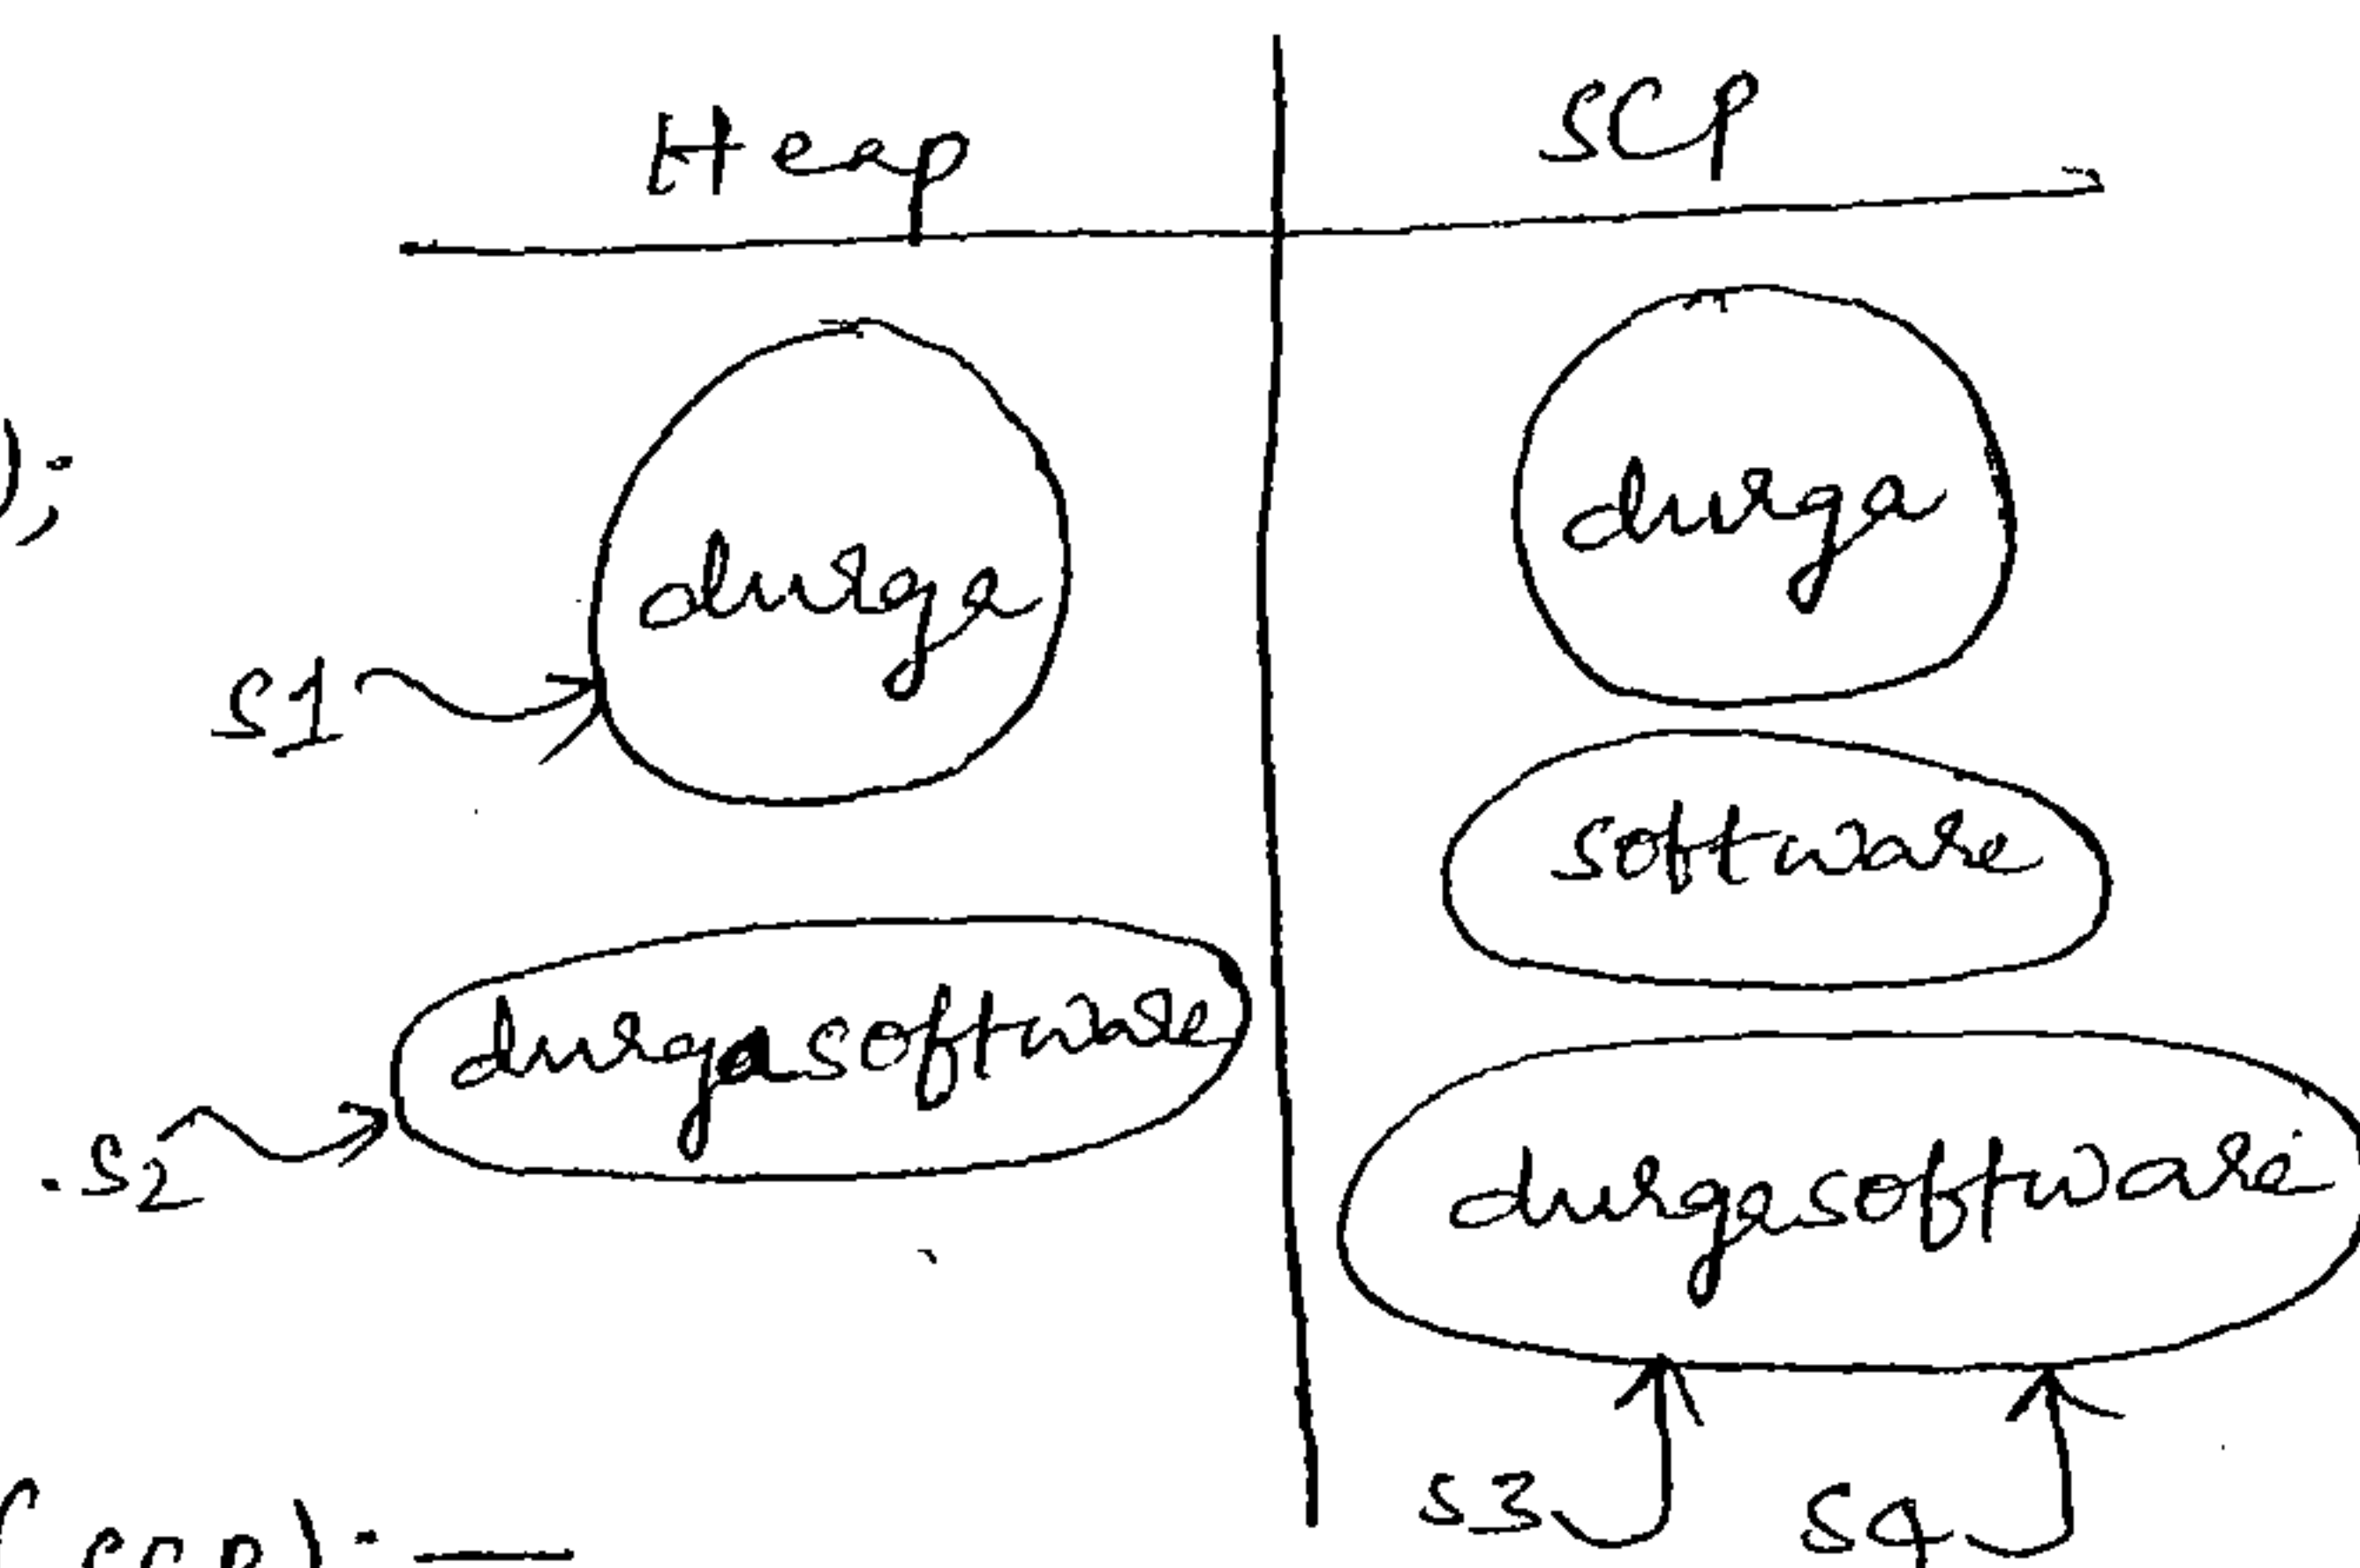 Heap SCP
);
durga durga
S1
software
durgasoftware
S2 durgasoftware
S3 S4
(SCP):—